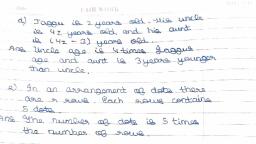 d) Jaggu is z years old. His uncle
is 4z years old and his aunt
is (4z - 3) years old.
Ans Uncle age is 4 times Jaggus
age and aunt is 3 years younger
than uncle.
e) In an arrangement of dots there
are r rows. Each rows contains
5 dots.
Ans The number of dots is 5 times
the number of rows.